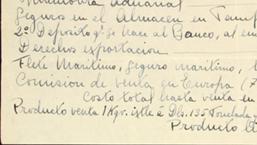 Maniobra aduanal
Seguros en el Almacen en Tamp
2º Deposito q' se hace al Banco, al em
Derechos exportacion
Flete Maritimo, seguro maritimo,
Comision de venta en Europa (7
Costo total hasta venta en
Producto venta 1 Kgr. istle á Dls. 135 Tonelada y
Producto